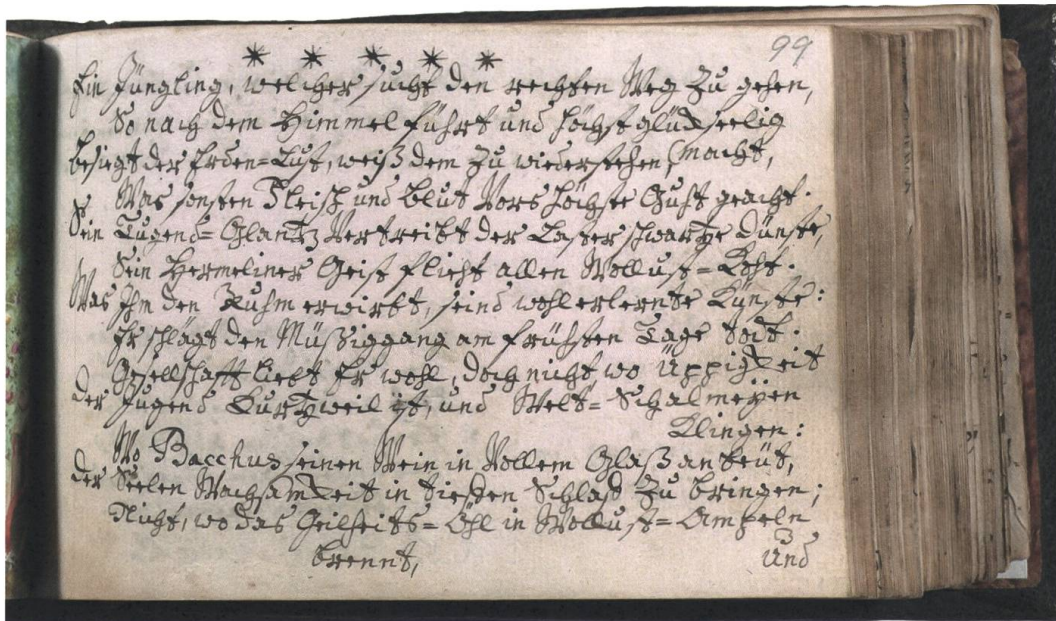 99
Ein Jüngling, welcher sucht den rechten Weg zu gehen,
So nach dem Himmel führt und höchst glückseelig
besiegt der Erden=Lust, weiß dem zu wiederstehen, (macht,
Was sonsten Fleisch und Blut vors höchste Guht geacht.
Sein Tugend=Glantz vertreibt der Laster schwartze Dünste,
Sein Hermeliner Geist flieht allen Wollust=Koht.
Was Ihm den Ruhm erwirbt, seind wohl erlernte Künste:
Er schlägt den Müßiggang am frühsten Tage todt.
Gesellschafft liebt Er wohl, doch nicht wo Üppigkeit
der Jugend Kurtzweil ist, und Welt=Schalmeyen
Klingen:
Wo Bacchus seinen Wein in vollem Glaß anbeüt,
der Seelen Wachsamkeit in tieffen Schlaff zu bringen;
Nicht, wo das Geilheits=Öhl in Wollust=Ampeln
brennt,
und